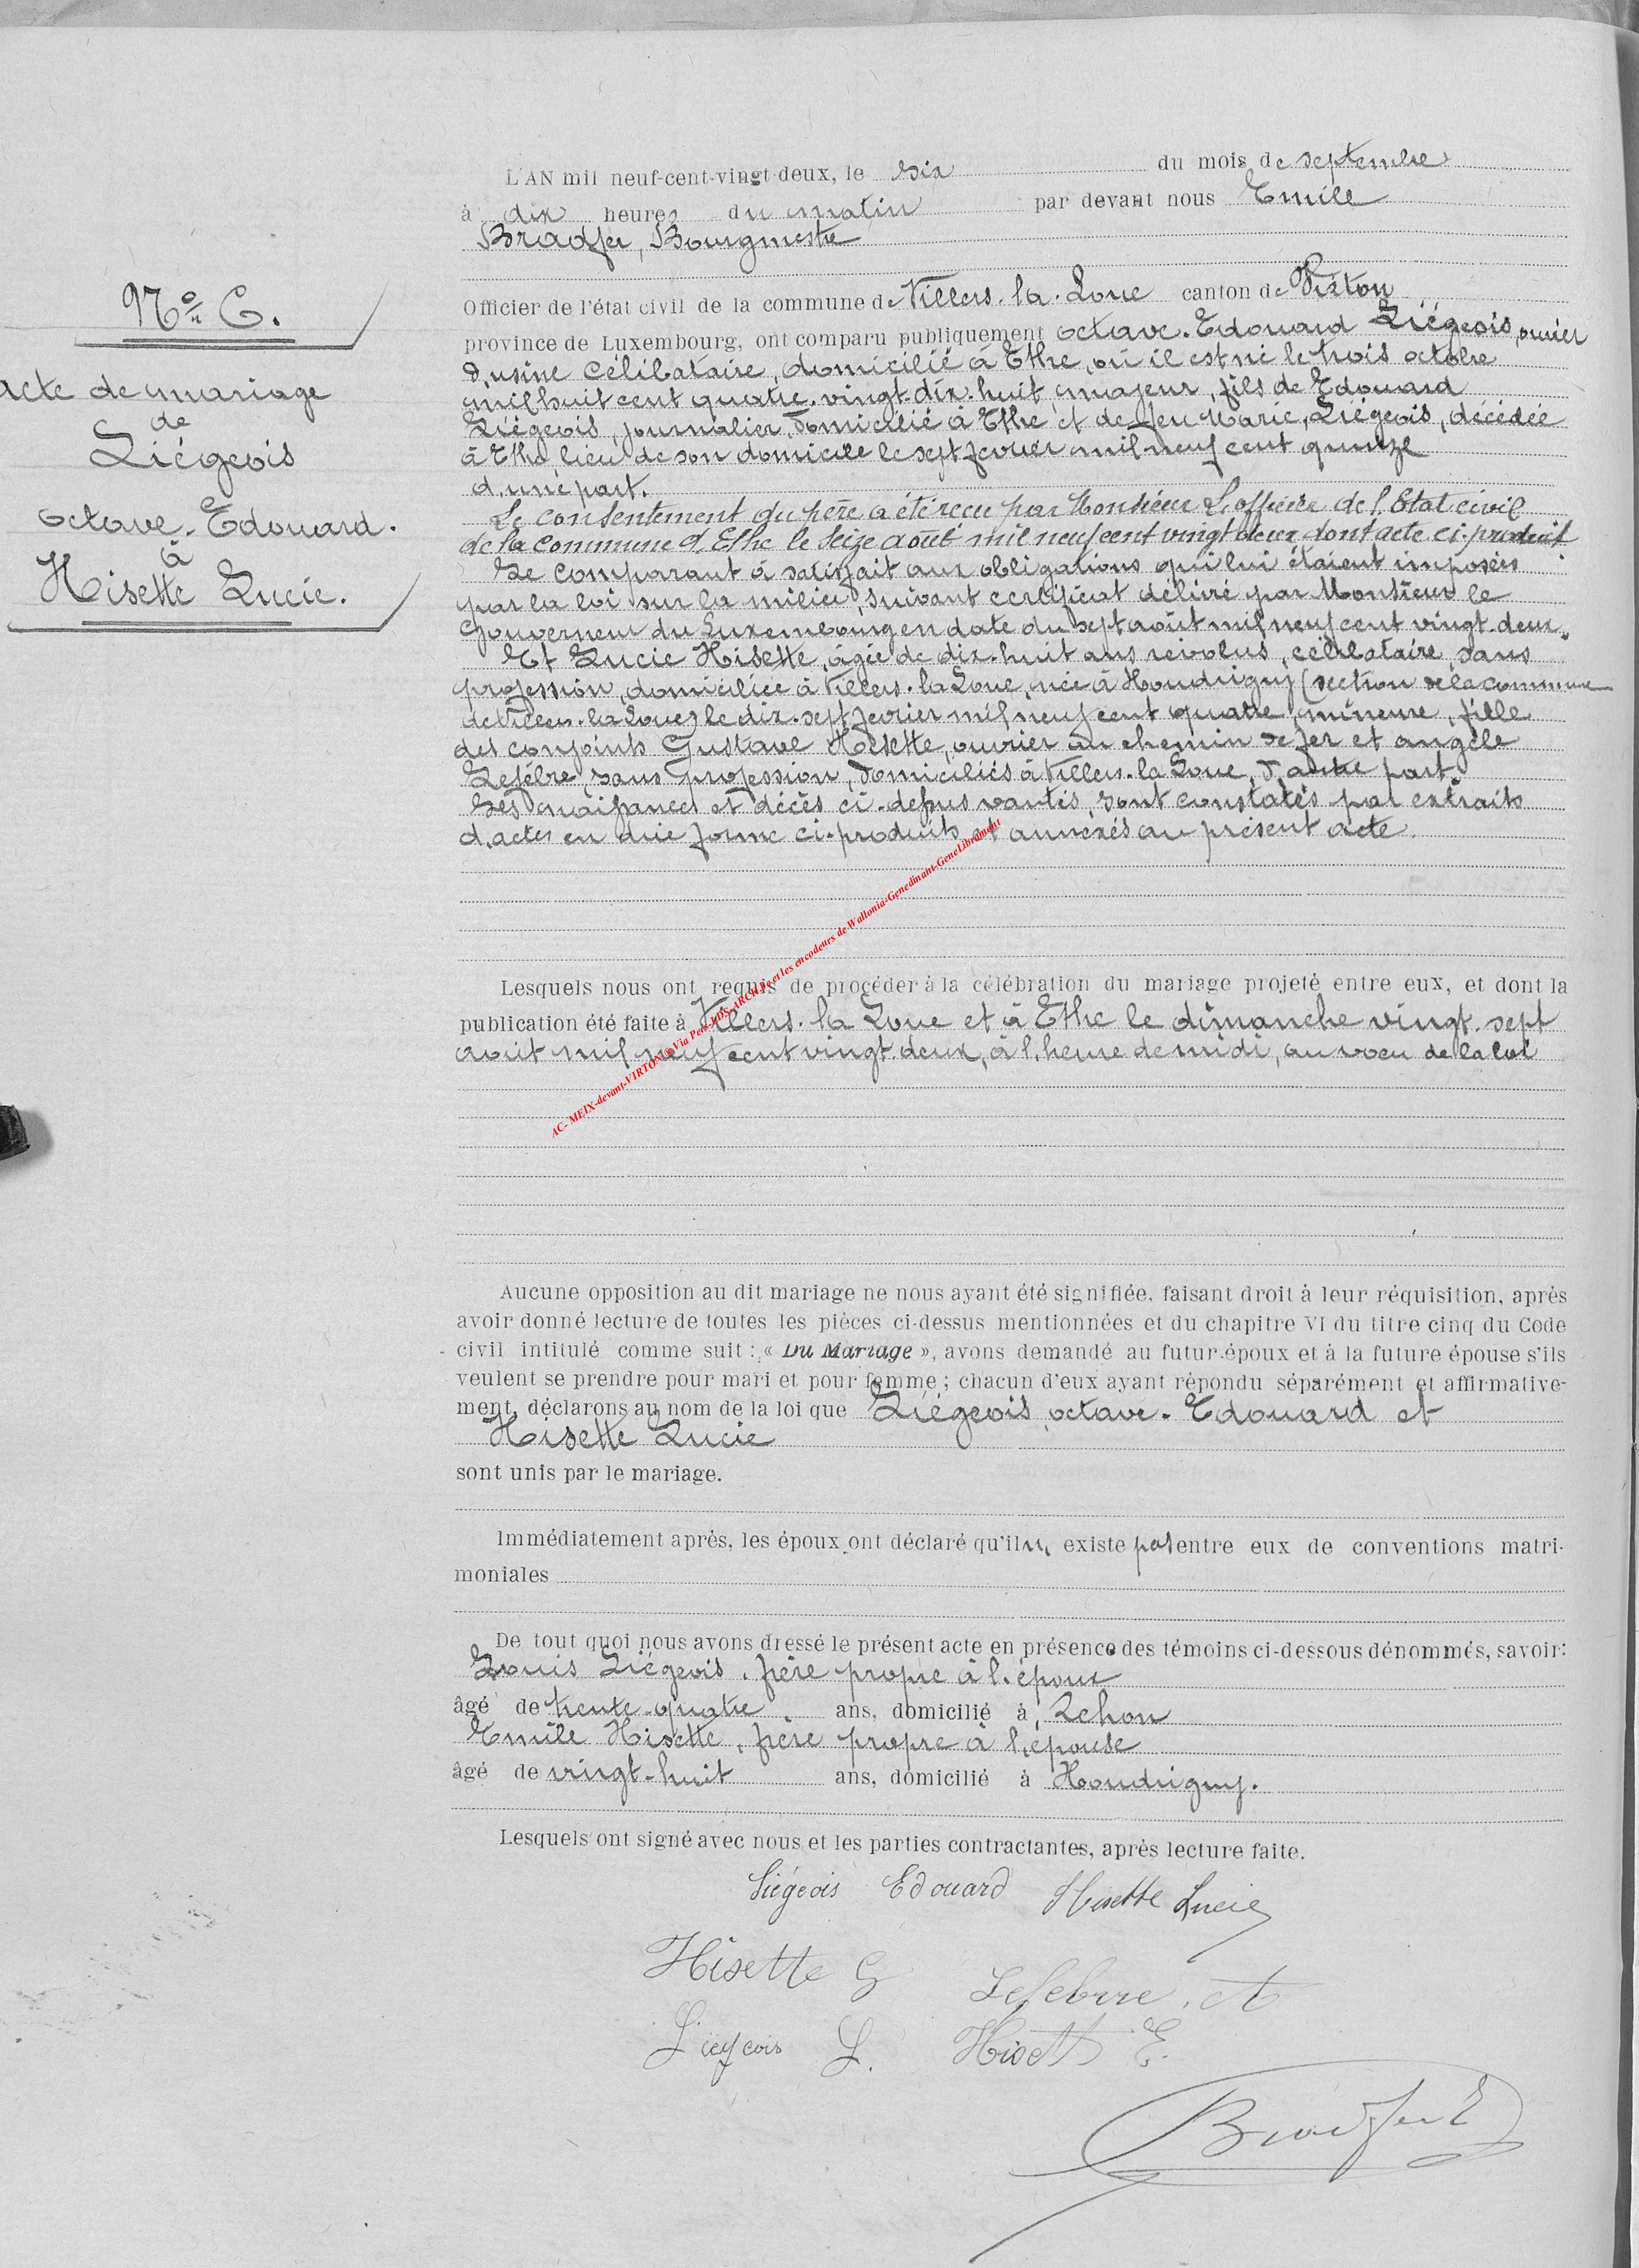 L'AN mil neuf-cent-vingt-deux, le six du mois de septembre
à dix heures du matin par devant nous Emile
Bradfer, Bourgmestre
N° 6.
Officier de l'état civil de la commune de Villers-la-Loue canton de Virton
province de Luxembourg, ont comparu publiquement Octave-Edouard Liégeois, ouvrier
d'usine célibataire, domicilié à Ethe, où il est né le trois octobre
mil huit cent quatre-vingt-dix-huit, majeur, fils de Edouard
Liégeois, journalier, domicilié à Ethe et de feu Marie Liégeois, décédée
à Ethe, lieu de son domicile le sept fevrier mil neuf cent quinze
d'une part.
acte de mariage
de
Liégeois
Octave-Edouard.
à
Hisette Lucie.
Le consentement du père a été reçu par Monsieur L'officier de l'Etat civil
de la commune d'Ethe le seize août mil neuf cent vingt deux dont acte ci-produit
Le comparant à satisfait aux obligations qui lui étaient imposées
par la loi sur la milice, suivant certificat délivré par Monsieur le
Gouverneur du Luxembourg en date du sept août mil neuf cent vingt-deux.
Et Lucie Hisette, âgée de dix-huit ans révolus, célibataire, sans
profession, domiciliée à Villers-la-Loue, née à Houdrigny (section de la commune
de Villers-la-Loue) le dix-sept fevrier mil neuf cent quatre, mineure, fille
des conjoints Gustave Hisette, ouvrier au chemin de fer et Angèle
Lefèbre, sans profession, domiciliés à Villers-la-Loue, d'autre part.
Les naissances et décès ci-dessus vantés, sont constatés par extraits
d'actes en due forme ci-produits et annexés au présent acte.
Lesquels nous ont requis de procéder à la célébration du mariage projeté entre eux, et dont la
publication été faite à Villers-la-Loue et à Ethe le dimanche vingt-sept
août mil neuf cent vingt-deux, à l'heure de midi, au voeu de la loi
AC- MEIX-devant-VIRTON Via Pers-FDS-ARCH.be et les encodeurs de Wallonia-Genedinant-GeneLibramont
Aucune opposition au dit mariage ne nous ayant été signifiée, faisant droit à leur réquisition, après
avoir donné lecture de toutes les pièces ci-dessus mentionnées et du chapitre VI du titre cinq du Code
civil intitulé comme suit : « Du Mariage », avons demandé au futur époux et à la future épouse s'ils
veulent se prendre pour mari et pour femme ; chacun d'eux ayant répondu séparément et affirmative-
ment, déclarons au nom de la loi que Liégeois octave-Edouard et
Hisette Lucie
sont unis par le mariage.
Immédiatement après, les époux ont déclaré qu'il n'existe pas entre eux de conventions matri-
moniales
De tout quoi nous avons dressé le présent acte en présence des témoins ci-dessous dénommés, savoir:
Louis Liégeois, frère propre à l'époux
âgé de trente-quatre ans, domicilié à Rehon
Emile Hisette, frère propre à l'épouse
âgé de vingt-huit ans, domicilié à Houdrigny.
Lesquels ont signé avec nous et les parties contractantes, après lecture faite.
Liégeois Edouard Hisette Lucie
Hisette G Lefebvre. A
Liégeois L. Hisette E.
Bradfer E